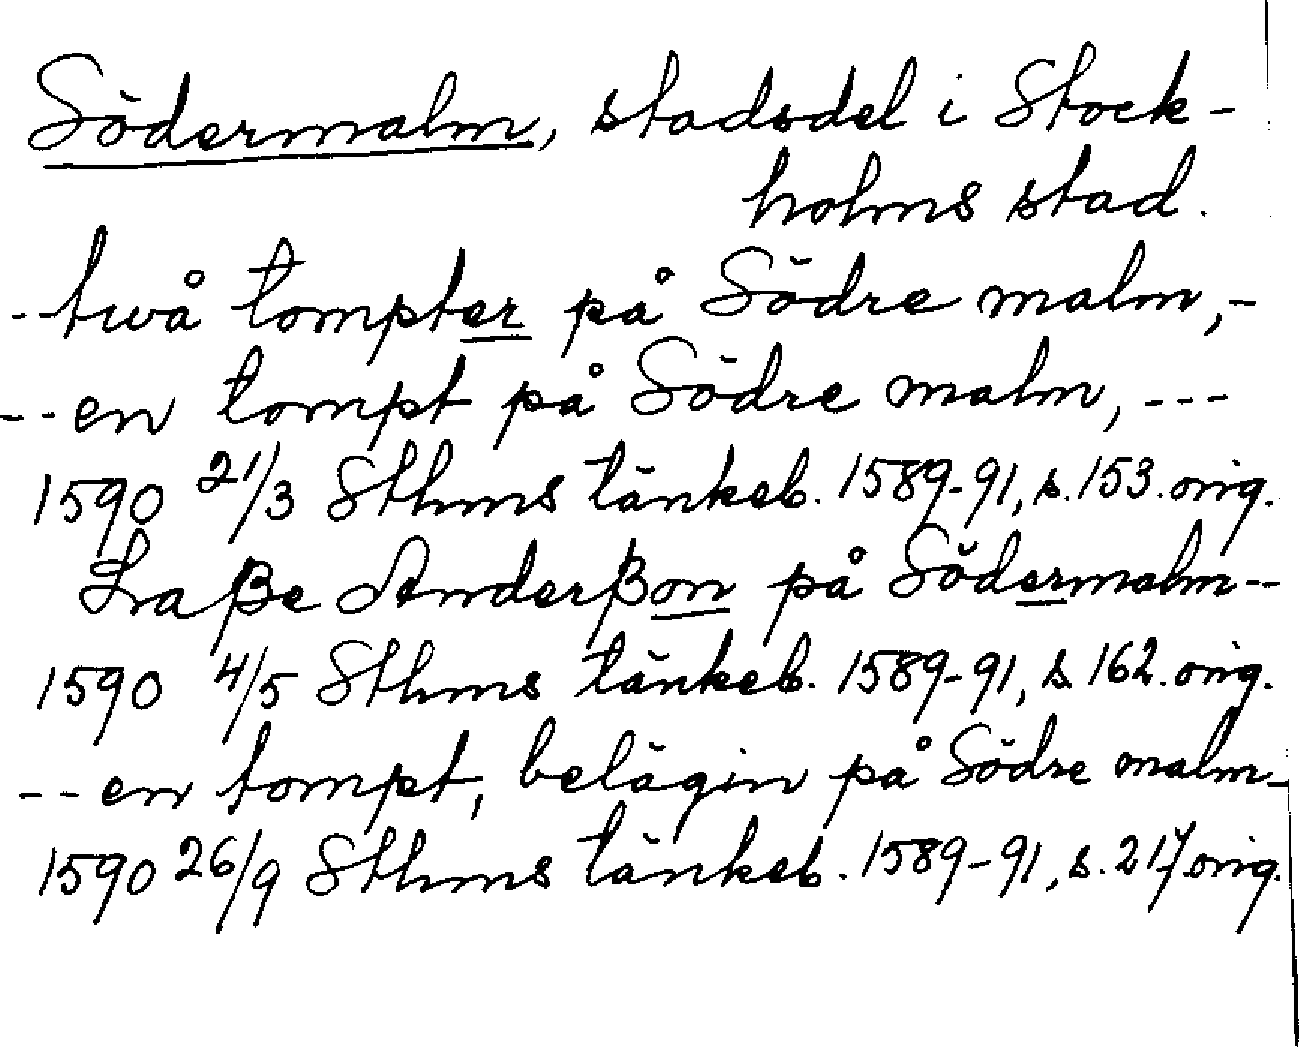 Södermalm, stadsdel i Stock-
holms stad.
--twå tompter på Södre malm,-
--en tompt på Södre malm,---
1590 21/3 Sthms tänkeb. 1589-91, s. 153. orig.
Laße Anderßon på Södermalm--
1590 4/5 Sthms tänkeb. 1589-91, s. 162. orig.
--en tompt, belägin på Södre malm-
1590 26/9 Sthms tänkeb. 1589-91, s. 217 orig.